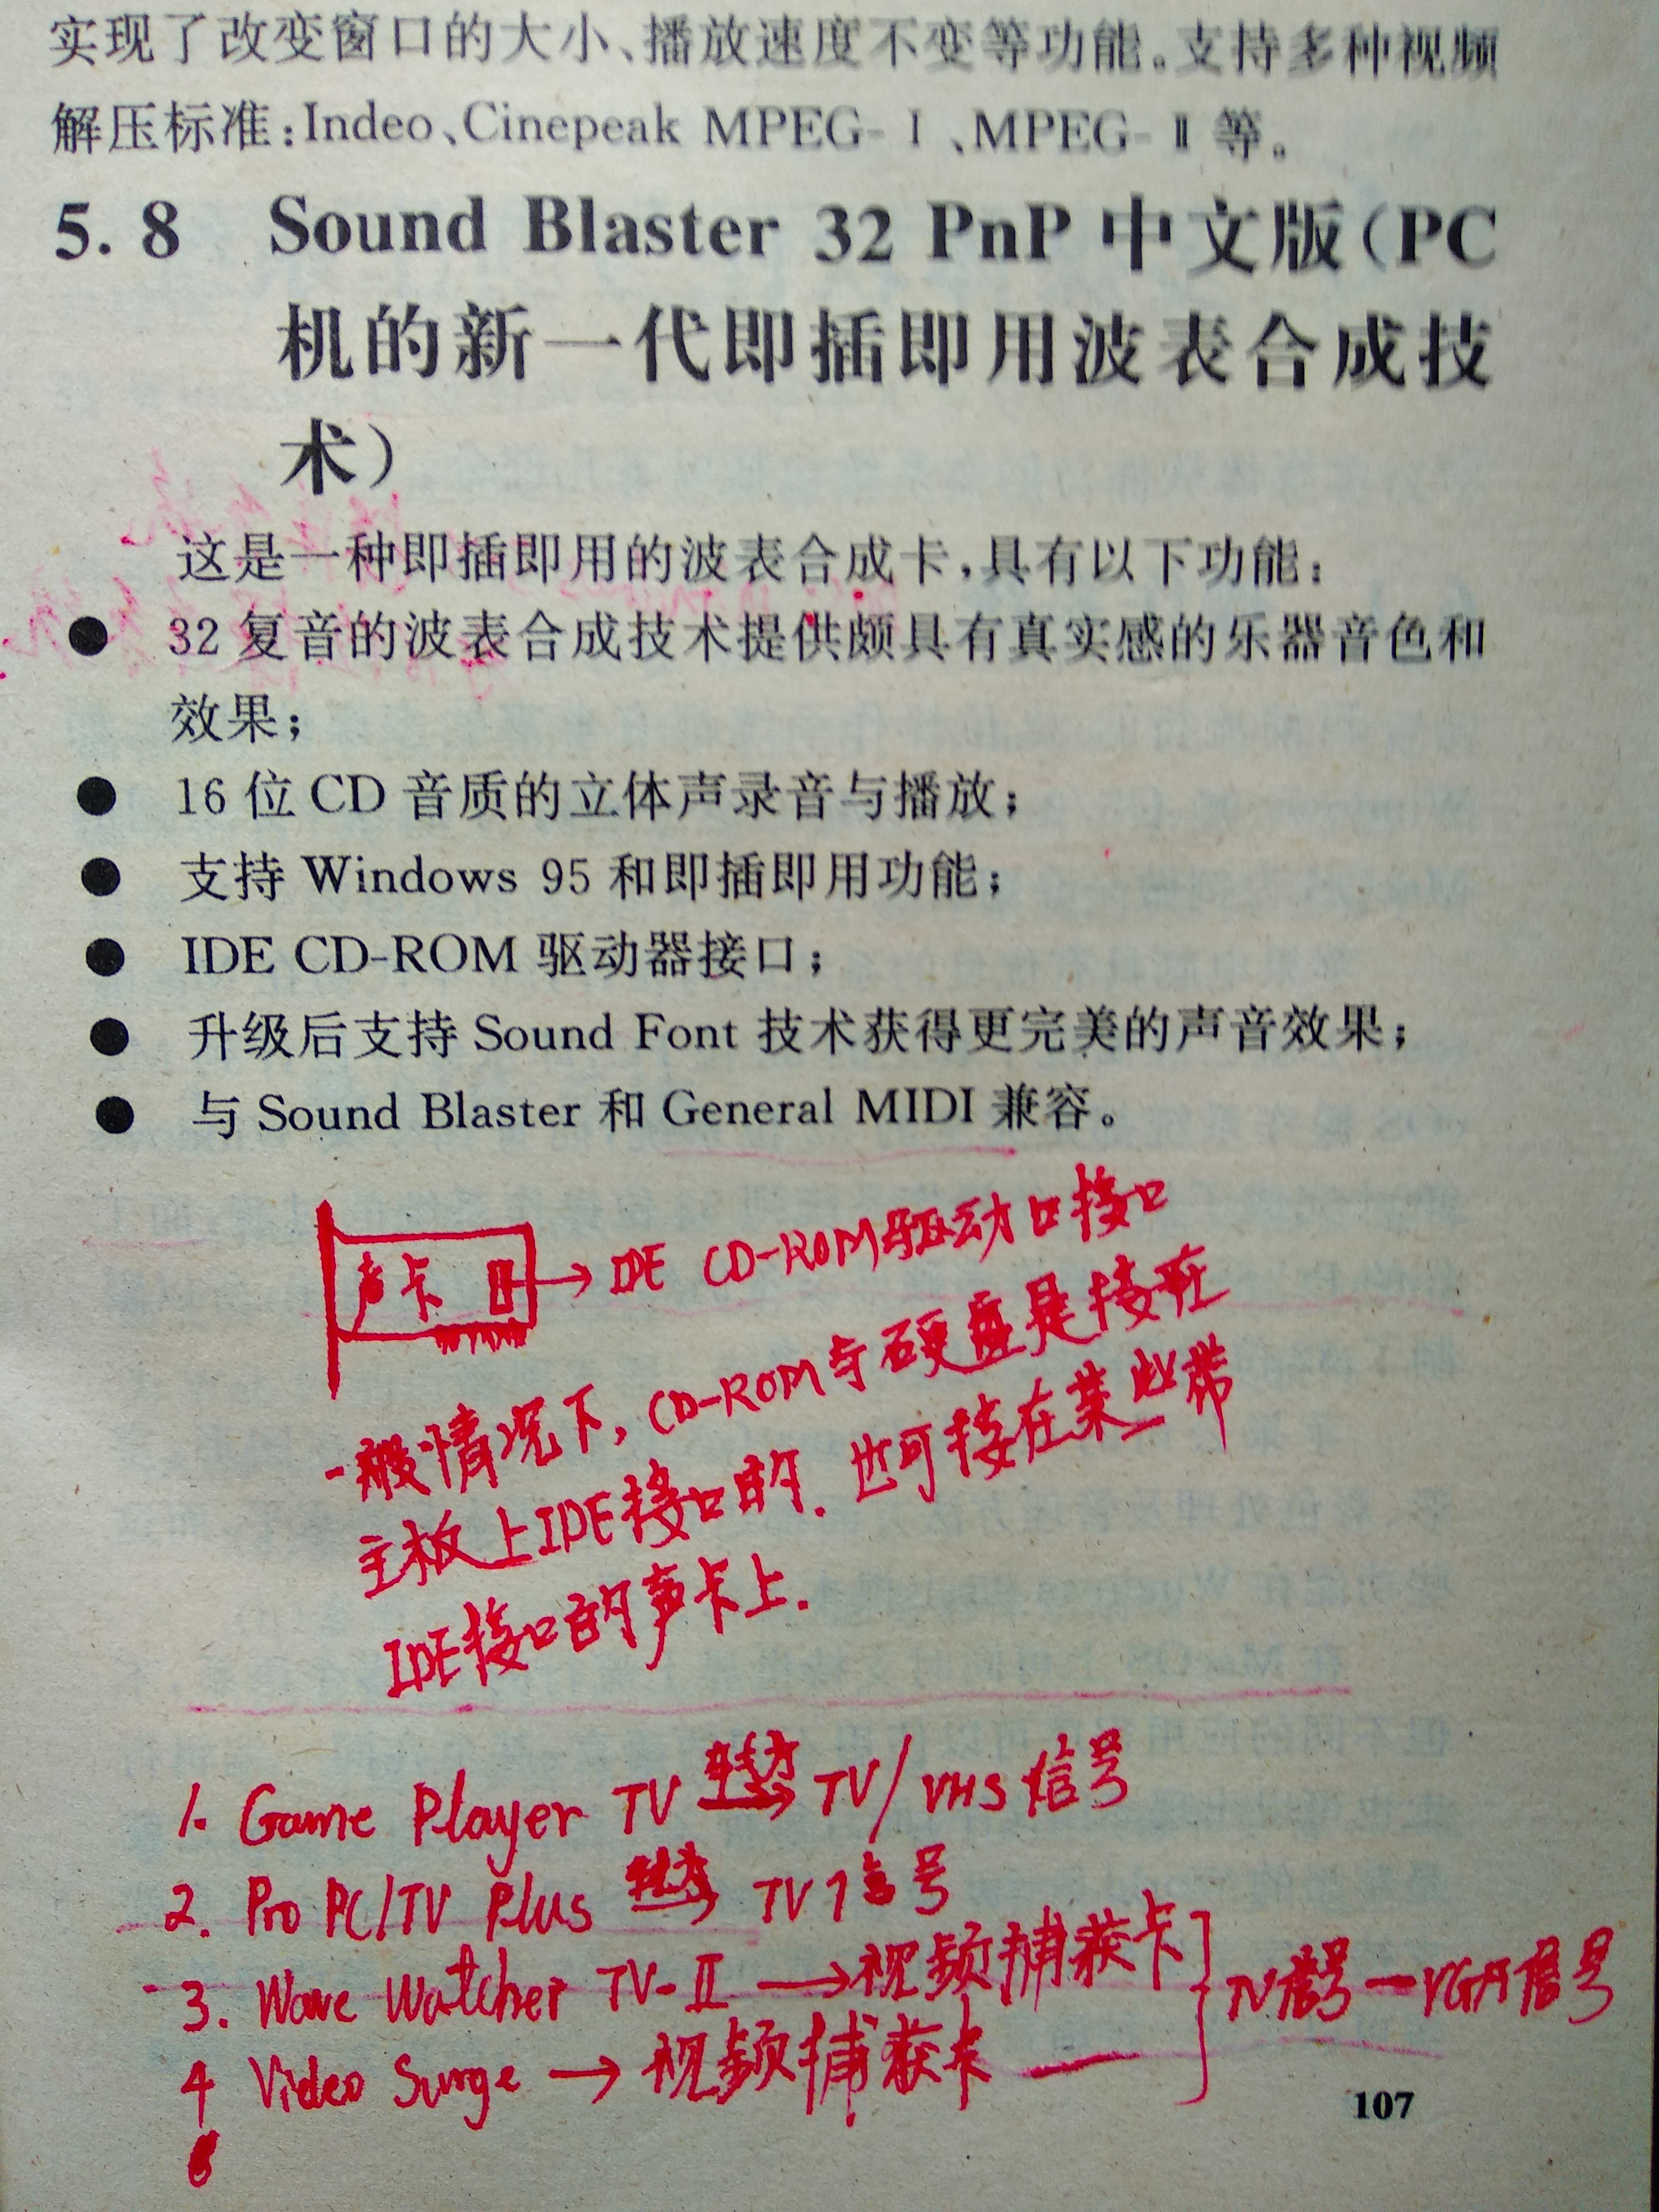 实现了改变窗口的大小、播放速度不变等功能。支持多种视频
解压标准:Indeo、Cinepeak MPEG-Ⅰ、MPEG-Ⅱ等。
5.8 Sound Blaster 32 PnP 中文版(PC
机的新一代即插即用波表合成技
术)
这是一种即插即用的波表合成卡,具有以下功能:
● 32复音的波表合成技术提供颇具有真实感的乐器音色和
效果;
● 16位CD音质的立体声录音与播放;
● 支持Windows 95和即插即用功能;
● IDE CD-ROM驱动器接口;
● 升级后支持Sound Font技术获得更完美的声音效果;
● 与Sound Blaster和General MIDI兼容。
声卡 → IDE CD-ROM驱动口接口
一般情况下, CD-ROM与硬盘是接在
主板上IDE接口的. 也可接在某些带
IDE接口的声卡上.
1. Game Player TV → TV/VHS信号
2. Pro PC/TV Plus → TV信号
3. Wave Watcher TV-Ⅱ → 视频捕获卡
TV信号—VGA信号
4 Video Surge → 视频捕获卡
107